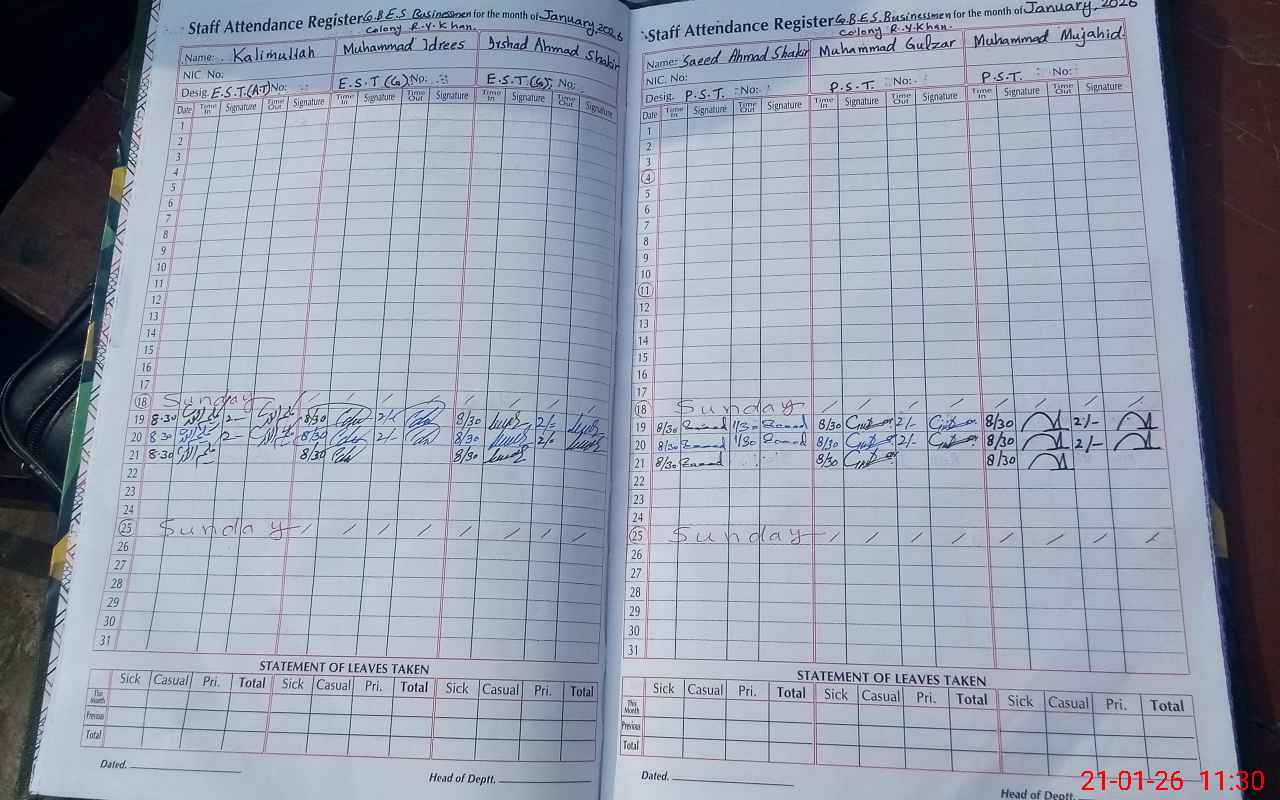 Staff Attendance Register G.B.E.S Businessmen for the month of January, 2026
Colony R.Y.Khan.
Name: Kalimullah Muhammad Idrees Irshad Ahmad Shakir
NIC No:
Desig. E.S.T.(AT) No: E.S.T (G) No: E.S.T (G), No:
Date Time In Signature Time Out Signature Time In Signature Time Out Signature Time In Signature Time Out Signature
1
2
3
4
5
6
7
8
9
10
11
12
13
14
15
16
17
18 Sunday
19 8-30 2- 8/30 2/- 8/30 2/-
20 8-30 2- 8/30 2/- 8/30 2/-
21 8-30 8/30 8/30
22
23
24
25 Sunday
26
27
28
29
30
31
STATEMENT OF LEAVES TAKEN
Sick Casual Pri. Total Sick Casual Pri. Total Sick Casual Pri. Total
This Month
Previous
Total
Dated.
Head of Deptt.
Staff Attendance Register G.B.E.S. Businessmen for the month of January, 2026
Colony R.Y.Khan.
Name: Saeed Ahmad Shakir Muhammad Gulzar Muhammad Mujahid.
NIC. No:
Desig. P.S.T. No: P.S.T. No: P.S.T. No:
Date Time In Signature Time Out Signature Time In Signature Time Out Signature Time In Signature Time Out Signature
1
2
3
4
5
6
7
8
9
10
11
12
13
14
15
16
17
18 Sunday
19 8/30 1/30 8/30 2/- 8/30 2/-
20 8/30 1/30 8/30 2/- 8/30 2/-
21 8/30 8/30 8/30
22
23
24
25 Sunday
26
27
28
29
30
31
STATEMENT OF LEAVES TAKEN
Sick Casual Pri. Total Sick Casual Pri. Total Sick Casual Pri. Total
This Month
Previous
Total
Dated.
Head of Deptt.
21-01-26 11:30